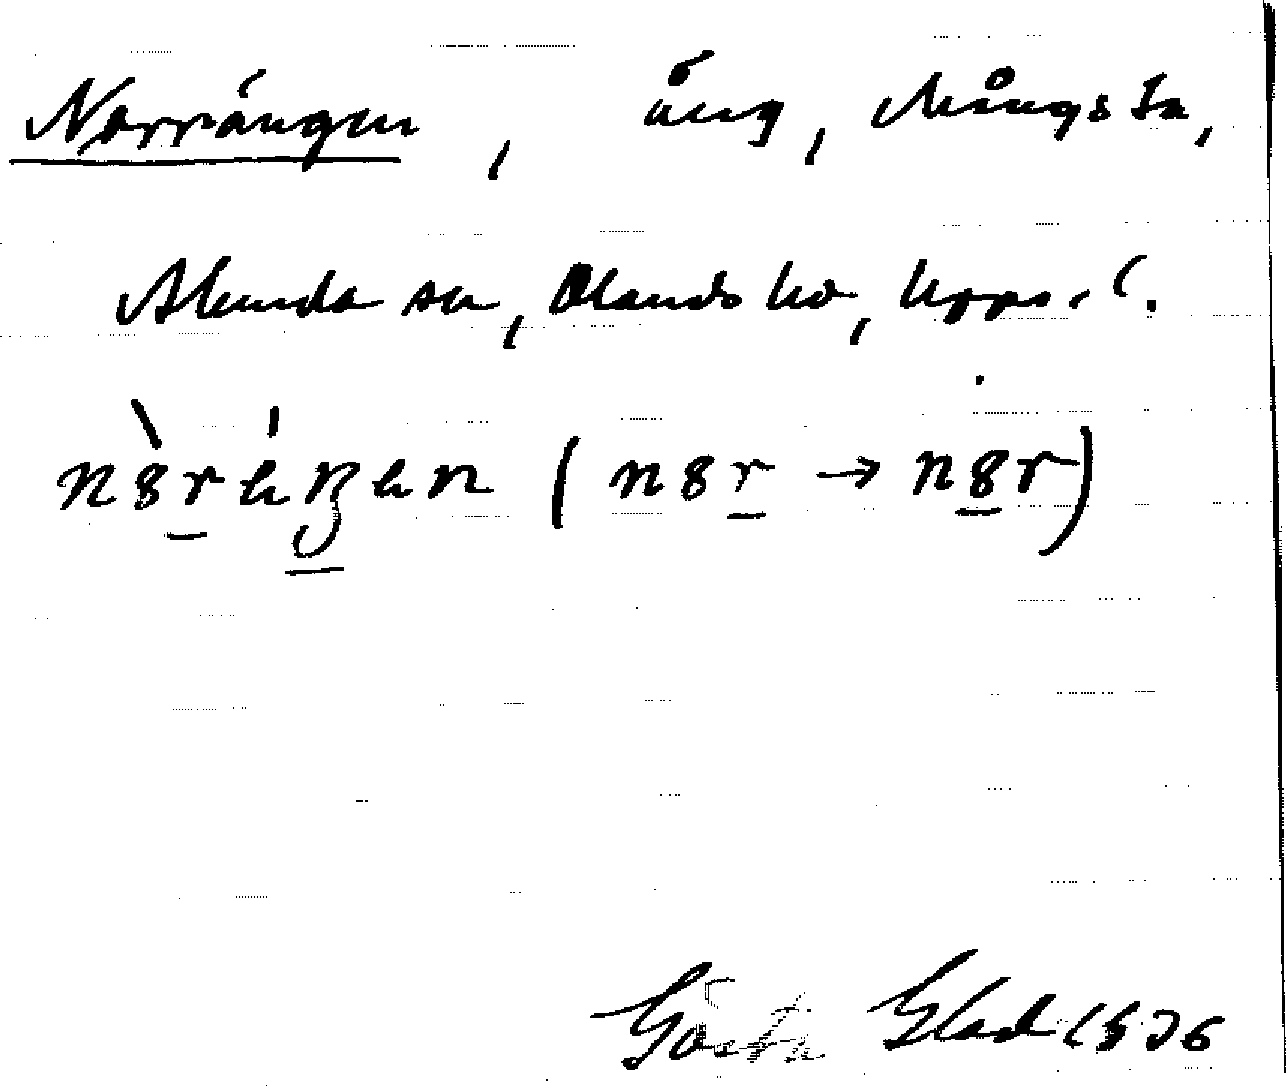 Norrängen, äng, Mångsta,
Alunda sn, Olands hd, Upps. l.
Gösta Glad 1936